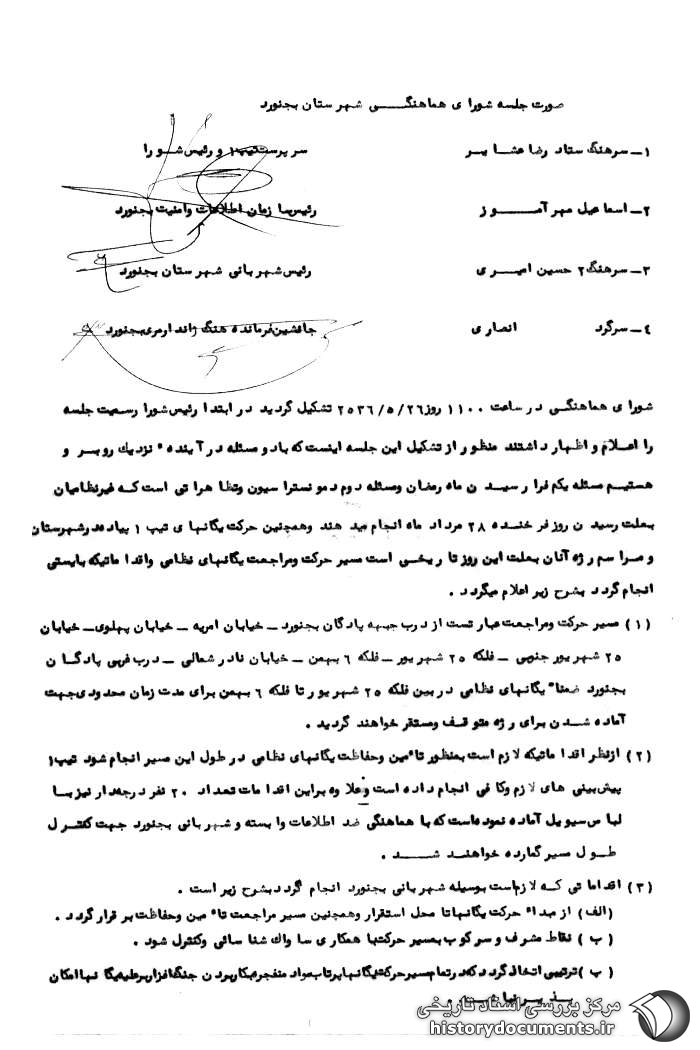 صورت جلسه شورای هماهنگی شهرستان بجنورد
۱ـ سرهنگ ستاد رضا عشایر سرپرست تیپ ۱ و رئیس شورا
۲ـ اسماعیل مهرآموز رئیس سازمان اطلاعات وامنیت بجنورد
۳ـ سرهنگ ۲ حسین امیری رئیس شهربانی شهرستان بجنورد
۴ـ سرگرد انصاری جانشین فرمانده هنگ ژاندارمری بجنورد
شورای هماهنگی در ساعت ۱۱۰۰ روز ۲۵۳۶/۵/۲۶ تشکیل گردید در ابتدا رئیس شورا رسمیت جلسه
را اعلام و اظهار داشتند منظور از تشکیل این جلسه اینست که با دو مسئله در آینده نزدیک روبر و
هستیم مسئله یکم فرا رسیدن ماه رمضان ومسئله دوم دمونستراسیون وتظاهراتی است که غیرنظامیان
بعلت رسیدن روز فرخنده ۲۸ مرداد ماه انجام مید هند وهمچنین حرکت یگانهای تیپ ۱ پیاده در شهرستان
و مراسم رژه آنان بعلت این روز تاریخی است مسیر حرکت ومراجعت یگانهای نظامی واقداماتیکه بایستی
انجام گردد بشرح زیر اعلام میگردد .
(۱) مسیر حرکت ومراجعت عبارتست از درب جبهه پادگان بجنورد ـ خیابان امریه ـ خیابان پهلوی ـ خیابان
۲۵ شهریور جنوبی ـ فلکه ۲۵ شهریور ـ فلکه ۶ بهمن ـ خیابان نادر شمالی ـ درب غربی پادگان
بجنورد ضمناً یگانهای نظامی در بین فلکه ۲۵ شهریور تا فلکه ۶ بهمن برای مدت زمان محدودی جهت
آماده شدن برای رژه متوقف ومستقر خواهند گردید .
(۲) ازنظر اقداماتیکه لازم است بمنظور تاءمین وحفاظت یگانهای نظامی در طول این مسیر انجام شود تیپ ۱
پیش بینی های لازم وکافی انجام داده است وعلاوه براین اقدامات تعداد ۲۰ نفر درجه دار نیز با
لباس سیویل آماده نموده است که با هماهنگی ضد اطلاعات وابسته و شهربانی بجنورد جهت کنترل
طول مسیر گمارده خواهند شد .
(۳) اقداماتی که لازم است بوسیله شهربانی بجنورد انجام گردد بشرح زیر است .
(الف) از مبداء حرکت یگانها تا محل استقرار وهمچنین مسیر مراجعت تاءمین وحفاظت برقرار گردد .
(ب) نقاط مشرف و سرکوب بمسیر حرکت با همکاری ساواک شناسائی وکنترل شود .
(پ) ترتیبی اتخاذ گردد که در تمام مسیر حرکت یگانها پرتاب مواد منفجره بکار بردن جنگ افزار بر علیه یگانها امکان
پذیر نباشد .
مرکز بررسی اسناد تاریخی
historydocuments.ir